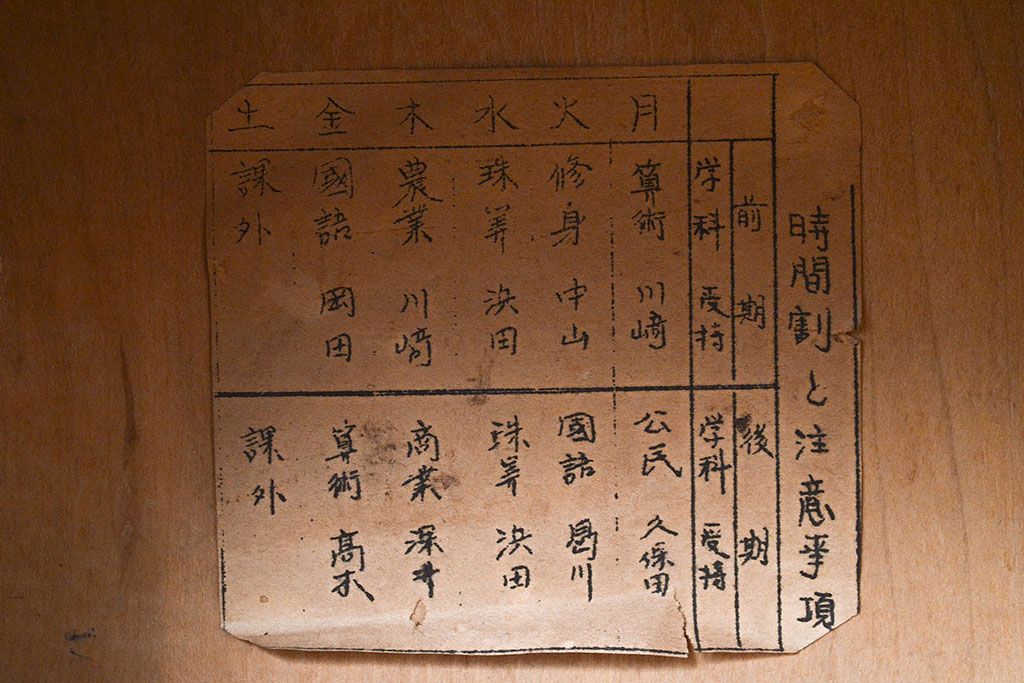 時間割と注意事項
前期 後期
学科 受持 学科 受持
月 算術 川﨑 公民 久保田
火 修身 中山 國語
水 珠算 浜田 珠算 浜田
木 農業 川﨑 商業 深井
金 國語 岡田 算術 高木
土 課外 課外